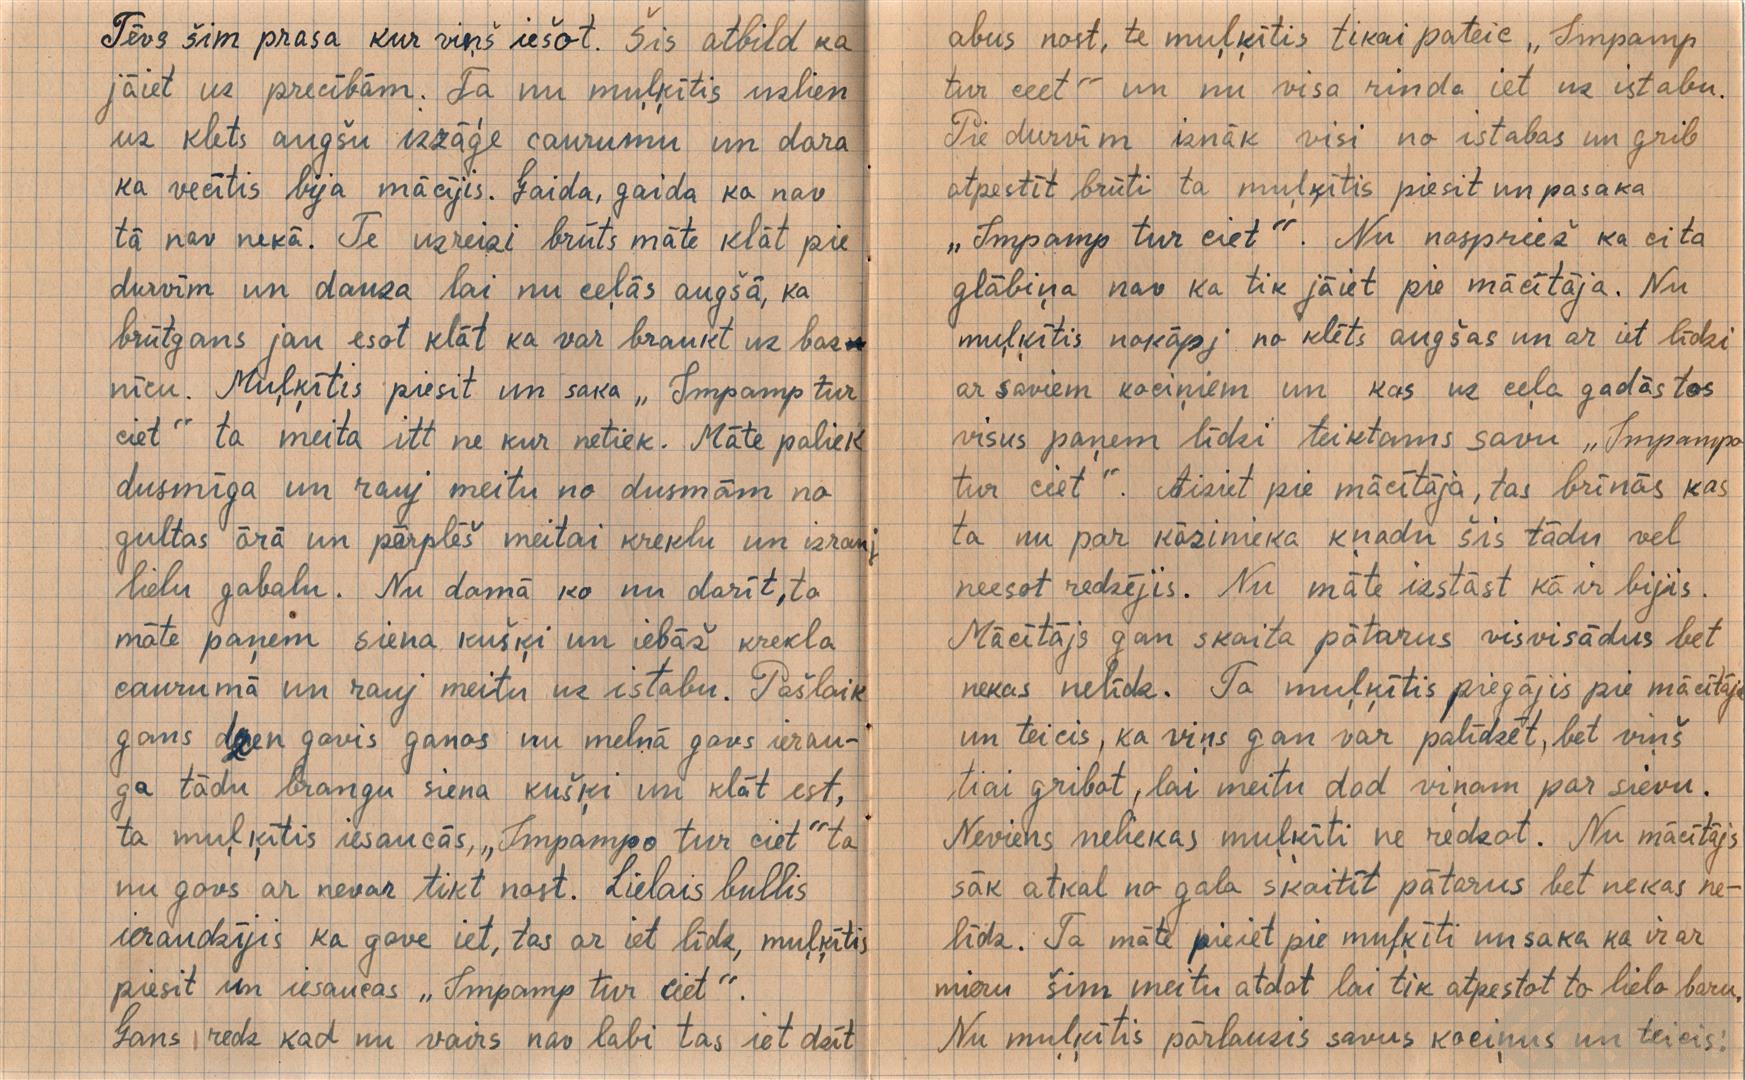 Tēvs šim prasa kur viņš iešot. Šis atbild ka
jāiet uz precībām. Ta nu muļķītis uzlien
uz klets augšu izzāģe caurumu un dara
ka vecītis bija mācījis. Gaida, gaida ka nav
tā nav nekā. Te uzreizi brūts māte klāt pie
durvīm un dauza lai nu ceļās augšā, ka
brūtgans jau esot klāt ka var braukt uz baz
nīcu. Muļķītis piesit un saka „Impamp tur
ciet“ ta meita itt ne kur netiek. Māte paliek
dusmīga un rauj meitu no dusmām no
gultas ārā un pārplēš meitai kreklu un izrauj
lielu gabalu. Nu domā ko nu darīt, ta
māte paņem siena kušķi un iebāž krekla
caurumā un rauj meitu uz istabu. Pašlaik
gans dzen govis ganos nu melnā govs ierau-
ga tādu brangu siena kušķi un klāt est,
ta muļķītis iesaucās, „Impampo tur ciet“ ta
nu govs ar nevar tikt nost. Lielais bullis
ieraudzījis ka gove iet, tas ar iet līdz, muļķītis
piesit un iesaucas „Impamp tur ciet“.
Gans redz kad nu vairs nav labi tas iet dzīt
abus nost, te muļķītis tikai pateic „Impamp
tur ceet“ un nu visa rinda iet uz istabu.
Pie durvīm iznāk visi no istabas un grib
atpestīt brūti ta muļķītis piesit un pasaka
„Impamp tur ciet“. Nu nospriež ka cita
glābiņa nav ka tik jāiet pie mācītāja. Nu
muļķītis nokāpj no klēts augšas un ar iet līdzi
ar saviem kociņiem un kas uz ceļa gadās tos
visus paņem līdzi teiktams savu „Impampo
tur ciet“. Aiziet pie mācītāja, tas brīnās kas
ta nu par kāzinieka kņadu šis tādu vel
neesot redzējis. Nu māte izstāst kā ir bijis.
Mācītājs gan skaita pātarus visvisādus bet
nekas nelīdz. Ta muļķītis piegājis pie mācītāja
un teicis, ka viņs gan var palīdzēt, bet viņš
tiai gribot, lai meitu dod viņam par sievu.
Neviens neliekas muļķīti ne redzot. Nu mācītājs
sāk atkal no gala skaitīt pātarus bet nekas ne-
līdz. Ta māte pieiet pie muļķīti un saka ka ir ar
mieru šim meitu atdot lai tik atpestot to lielo baru.
Nu muļķītis pārlauzis savus kociņus un teicis: